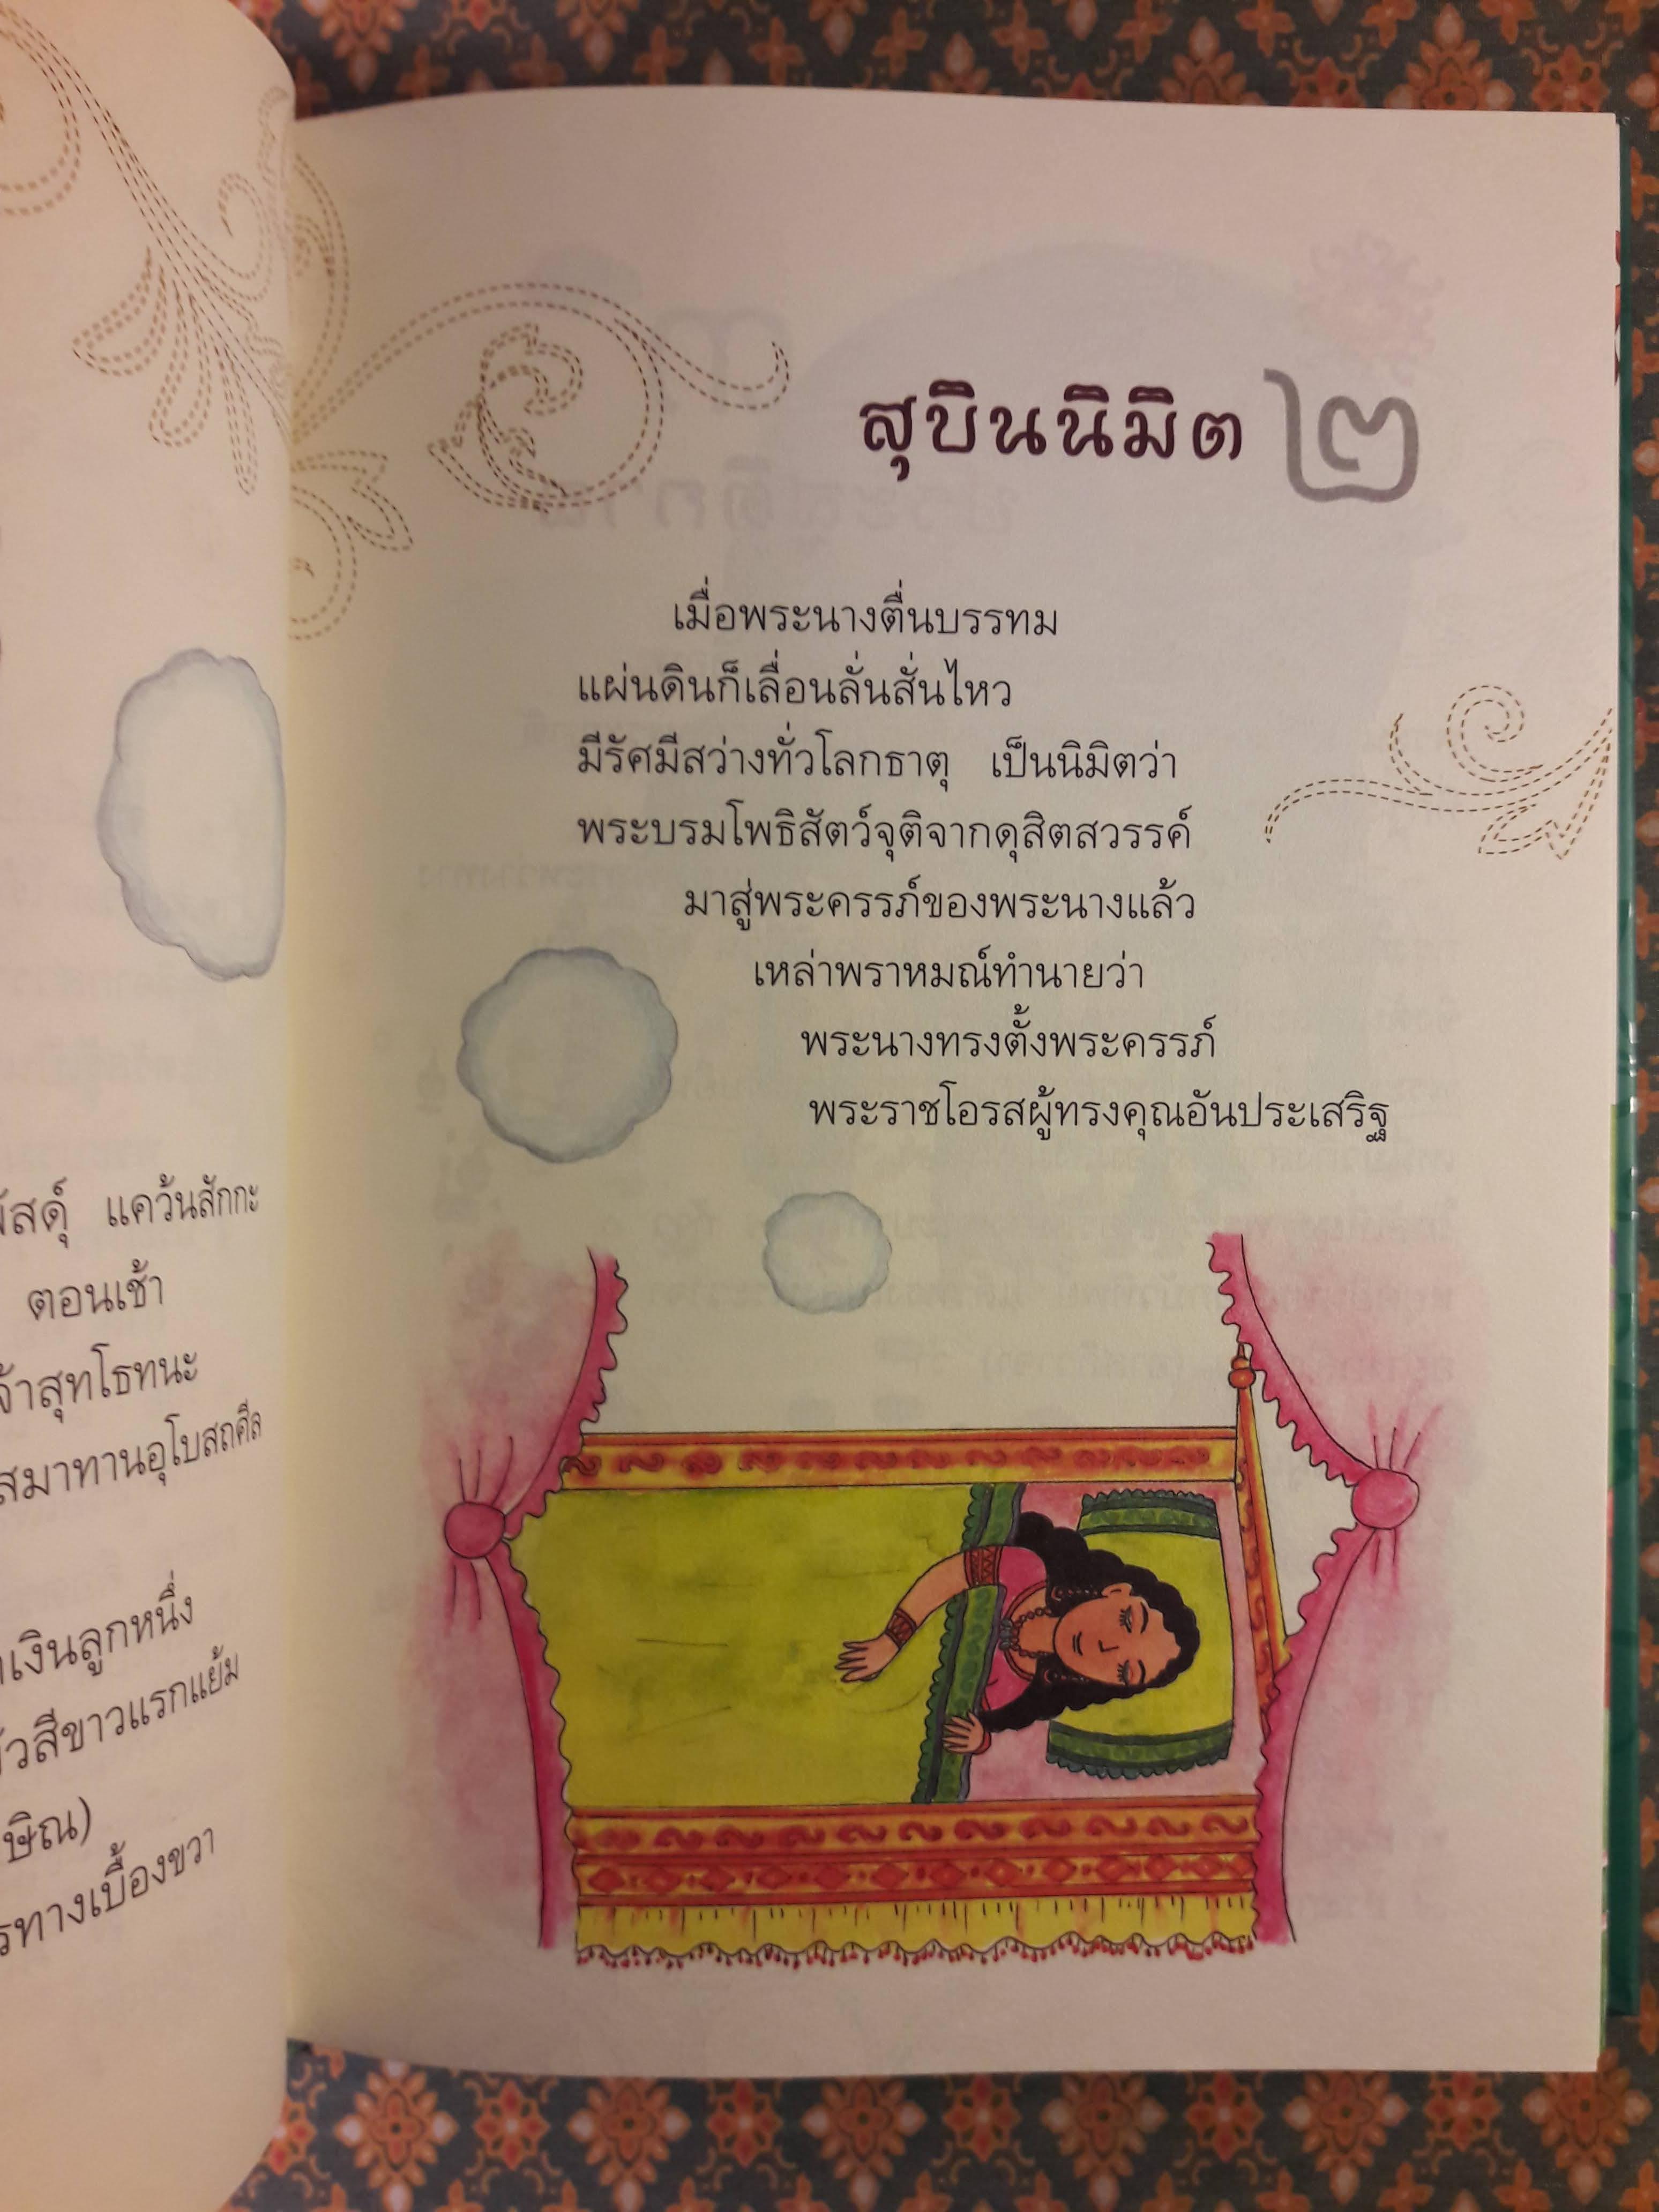 แคว้นสักกะ
ตอนเช้า
สุทโธทนะ
สมาทานอุโบสถศีล
เงินลูกหนึ่ง
สีขาวแรกแย้ม
ทางเบื้องขวา
สุบินนิมิต ๒
เมื่อพระนางตื่นบรรทม
แผ่นดินก็เลื่อนลั่นสั่นไหว
มีรัศมีสว่างทั่วโลกธาตุ เป็นนิมิตว่า
พระบรมโพธิสัตว์จุติจากดุสิตสวรรค์
มาสู่พระครรภ์ของพระนางแล้ว
เหล่าพราหมณ์ทำนายว่า
พระนางทรงตั้งพระครรภ์
พระราชโอรสผู้ทรงคุณอันประเสริฐ